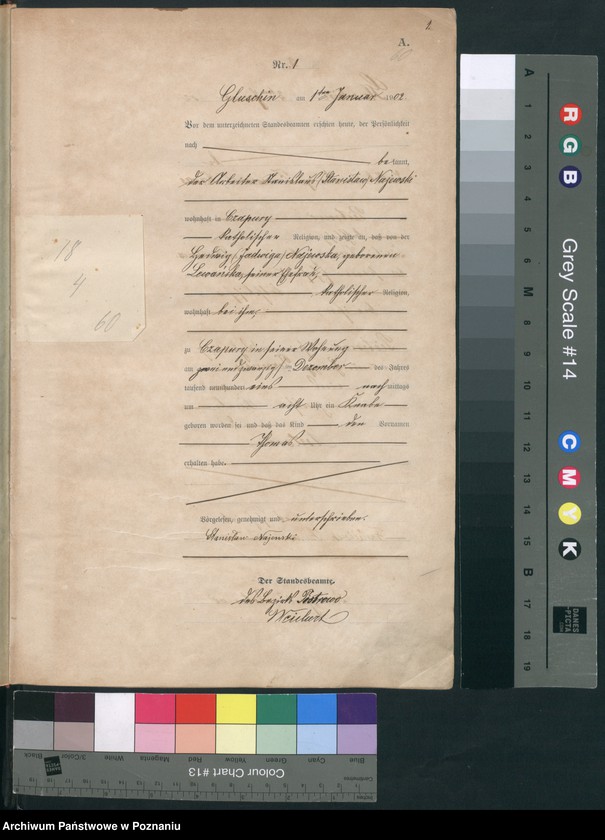 2
A.
60
Nr. 1
Gluschin am 1ten Januar 1902
Vor dem unterzeichneten Standesbeamten erschien heute, der Persönlichkeit
nach
bekannt,
der Arbeiter Stanislaus (Stanislaw) Najewski
wohnhaft in Czapury
katholischer Religion, und zeigte an, daß von der
Hedwig (Jadwiga) Najewska, geborenen
seiner Ehefrau,
katholischer Religion,
wohnhaft bei ihm,
zu Czapury in seiner Wohnung
am zwei und zwanzig Dezember des Jahres
tausend neunhundert eins nachmittags
um acht Uhr ein Knabe
geboren worden sei und daß das Kind den Vornamen
Thomas
erhalten habe.
Vorgelesen, genehmigt und unterschrieben
Stanislaw Najewski
Der Standesbeamte.
des Bezirks
18
4
60
A 1 2 3 4 5 6 M 8 9 10 11 12 13 14 15 B 17 18 19
R G B
Grey Scale #14
C M Y K
DANES
PICTA
Blue Cyan Green Yellow Red Magenta White 3/Color Black
Colour Chart #13
Centimetres
Inches
Archiwum Państwowe w Poznaniu